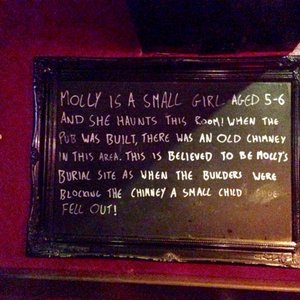 MOLLY IS A SMALL GIRL AGED 5-6
AND SHE HAUNTS THIS ROOM! WHEN THE
PUB WAS BUILT, THERE WAS AN OLD CHIMNEY
IN THIS AREA. THIS IS BELIEVED TO BE MOLLY'S
BURIAL SITE AS WHEN THE BUILDERS WERE
BLOCKING THE CHIMNEY A SMALL CHILD
FELL OUT!